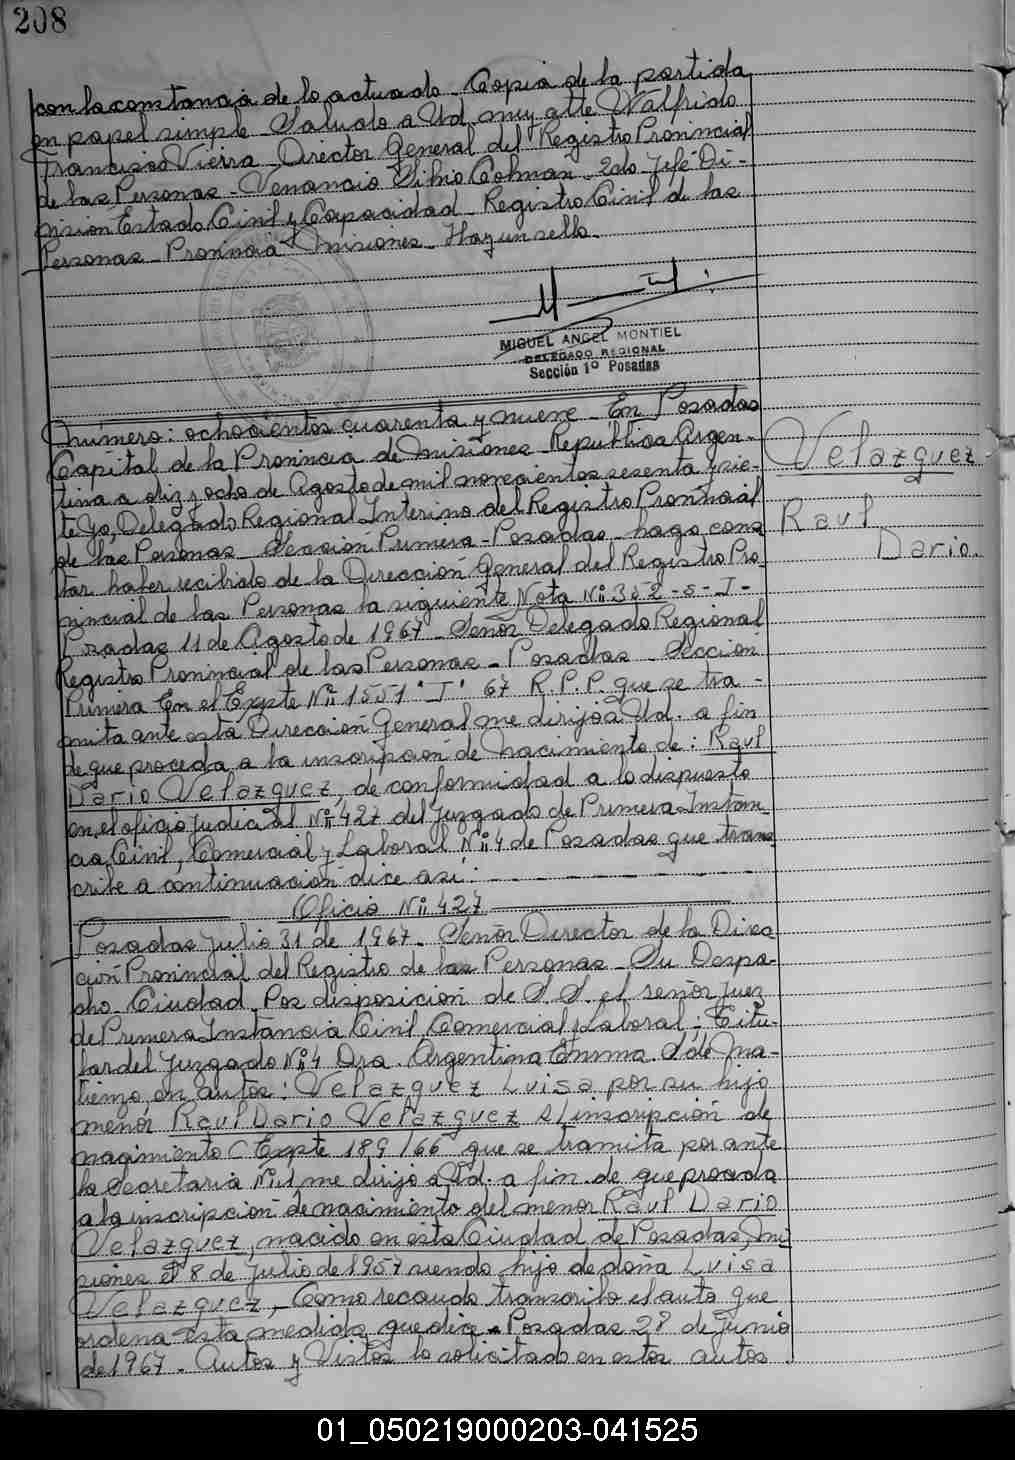 208
con la constancia de lo actuado - Copia de la partida
en papel simple - Saludo a Ud. muy atte Walfrido
Francisco Vierra - Director General del Registro Provincial
de las Personas - Venancio Silvio Colman - 2do Jefe Di-
vision Estado Civil y Capacidad - Registro Civil de las
Personas - Provincia Misiones - Hay un sello -
MIGUEL ANGEL MONTIEL
DELEGADO REGIONAL
Sección 1º Posadas
Número: ochocientos cuarenta y nueve - En Posadas
Capital de la Provincia de Misiones - República Argen-
tina a diez y ocho de Agosto de mil novecientos sesenta y sie-
te Yo, Delegado Regional Interino del Registro Provincial
de las Personas - Sección Primera - Posadas - hago cons
tar haber recibido de la Dirección General del Registro Pro
vincial de las Personas la siguiente Nota Nº 352 - S - I -
Posadas 11 de Agosto de 1967 - Señor Delegado Regional
Registro Provincial de las Personas - Posadas - Sección
Primera En el Expte Nº 1551 "I" 67 R.P.P. que se tra -
mita ante esta Dirección General me dirijo a Ud. a fin
de que proceda a la inscripción de Nacimiento de: Raul
Dario Velazquez, de conformidad a lo dispuesto
en el oficio Judicial Nº 427 del Juzgado de Primera Instan
cia Civil, Comercial y Laboral Nº 4 de Posadas que trans
cribe a continuación dice asi: - - - - - - - -
Oficio Nº 427
Posadas Julio 31 de 1967 - Señor Director de la Direc
ción Provincial del Registro de las Personas - Su Despa-
cho - Ciudad. Por disposición de S.S. el señor Juez
de Primera Instancia Civil, Comercial y Laboral; Titu-
lar del Juzgado Nº 4 Dra. Argentina Emma Solé Ma-
tienzo, en autos: Velazquez Luisa por su hijo
menor Raul Dario Velazquez s/inscripción de
nacimiento (Expte 189/66 que se tramita por ante
la Secretaria Nº 1 me dirijo a Ud. a fin de que proceda
a la inscripción de nacimiento del menor Raul Dario
Velazquez, nacido en esta Ciudad de Posadas, Mi
siones el 8 de Julio de 1957 siendo hijo de doña Luisa
Velazquez, - Como recaudo transcribo el auto que
ordena esta medida que dice - Posadas 28 de Junio
de 1967 - Autos y Vistos lo solicitado en estos autos
Velazquez
Raul
Dario.
01_050219000203-041525